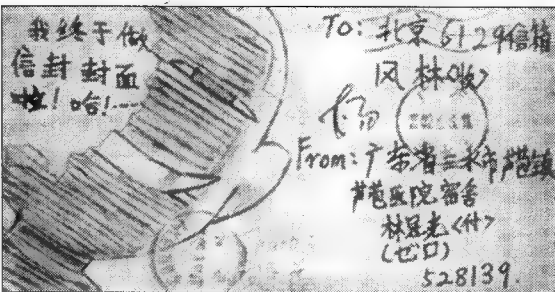 我终于做
信封封面
啦！哈！……
To: 北京6129信箱
风林<收>
From: 广东省三水市芦苞镇
芦苞医院宿舍
林冠尧<付>
(七口)
528139.